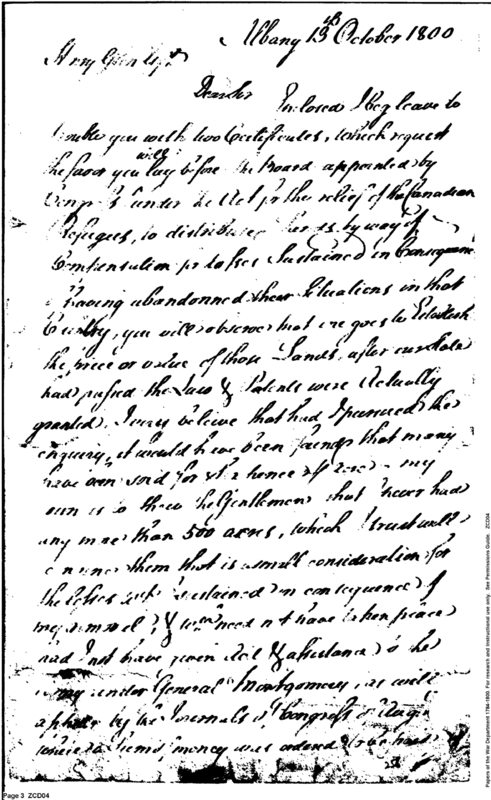 Albany 13th October 1800
Dear Sir Inclosed I beg leave to
trouble you with two Certificates, which request
the favor you will lay before the Board appointed by
Congress under the Act for the relief of the Canadian
Refugees, to distribute by way of
Compensation for losses Sustained in Consequence
of having abandonned their Situations in that
Country, you will observe that one goes to Establish
the price or value of those Lands, after our State
had passed the Law & Patents were Actually
granted, I believe that had I pursued the
enquiry, it would have been found that many
have been sold for
own is to shew the Gentlemen that I never had
any more than 500 acres, which I trust will
convince them that is a small consideration for
the losses sustained in consequence of
my removal, & need not have taken place
had I not have given aid & assistance to the
army under General Montgomery, as will
appear by the Journals of Congress of
where a sum of money was ordered to be
Page 3 ZCD04
Papers of the War Department 1784-1800. For research and instructional use only. See Permissions Guide. ZCD04